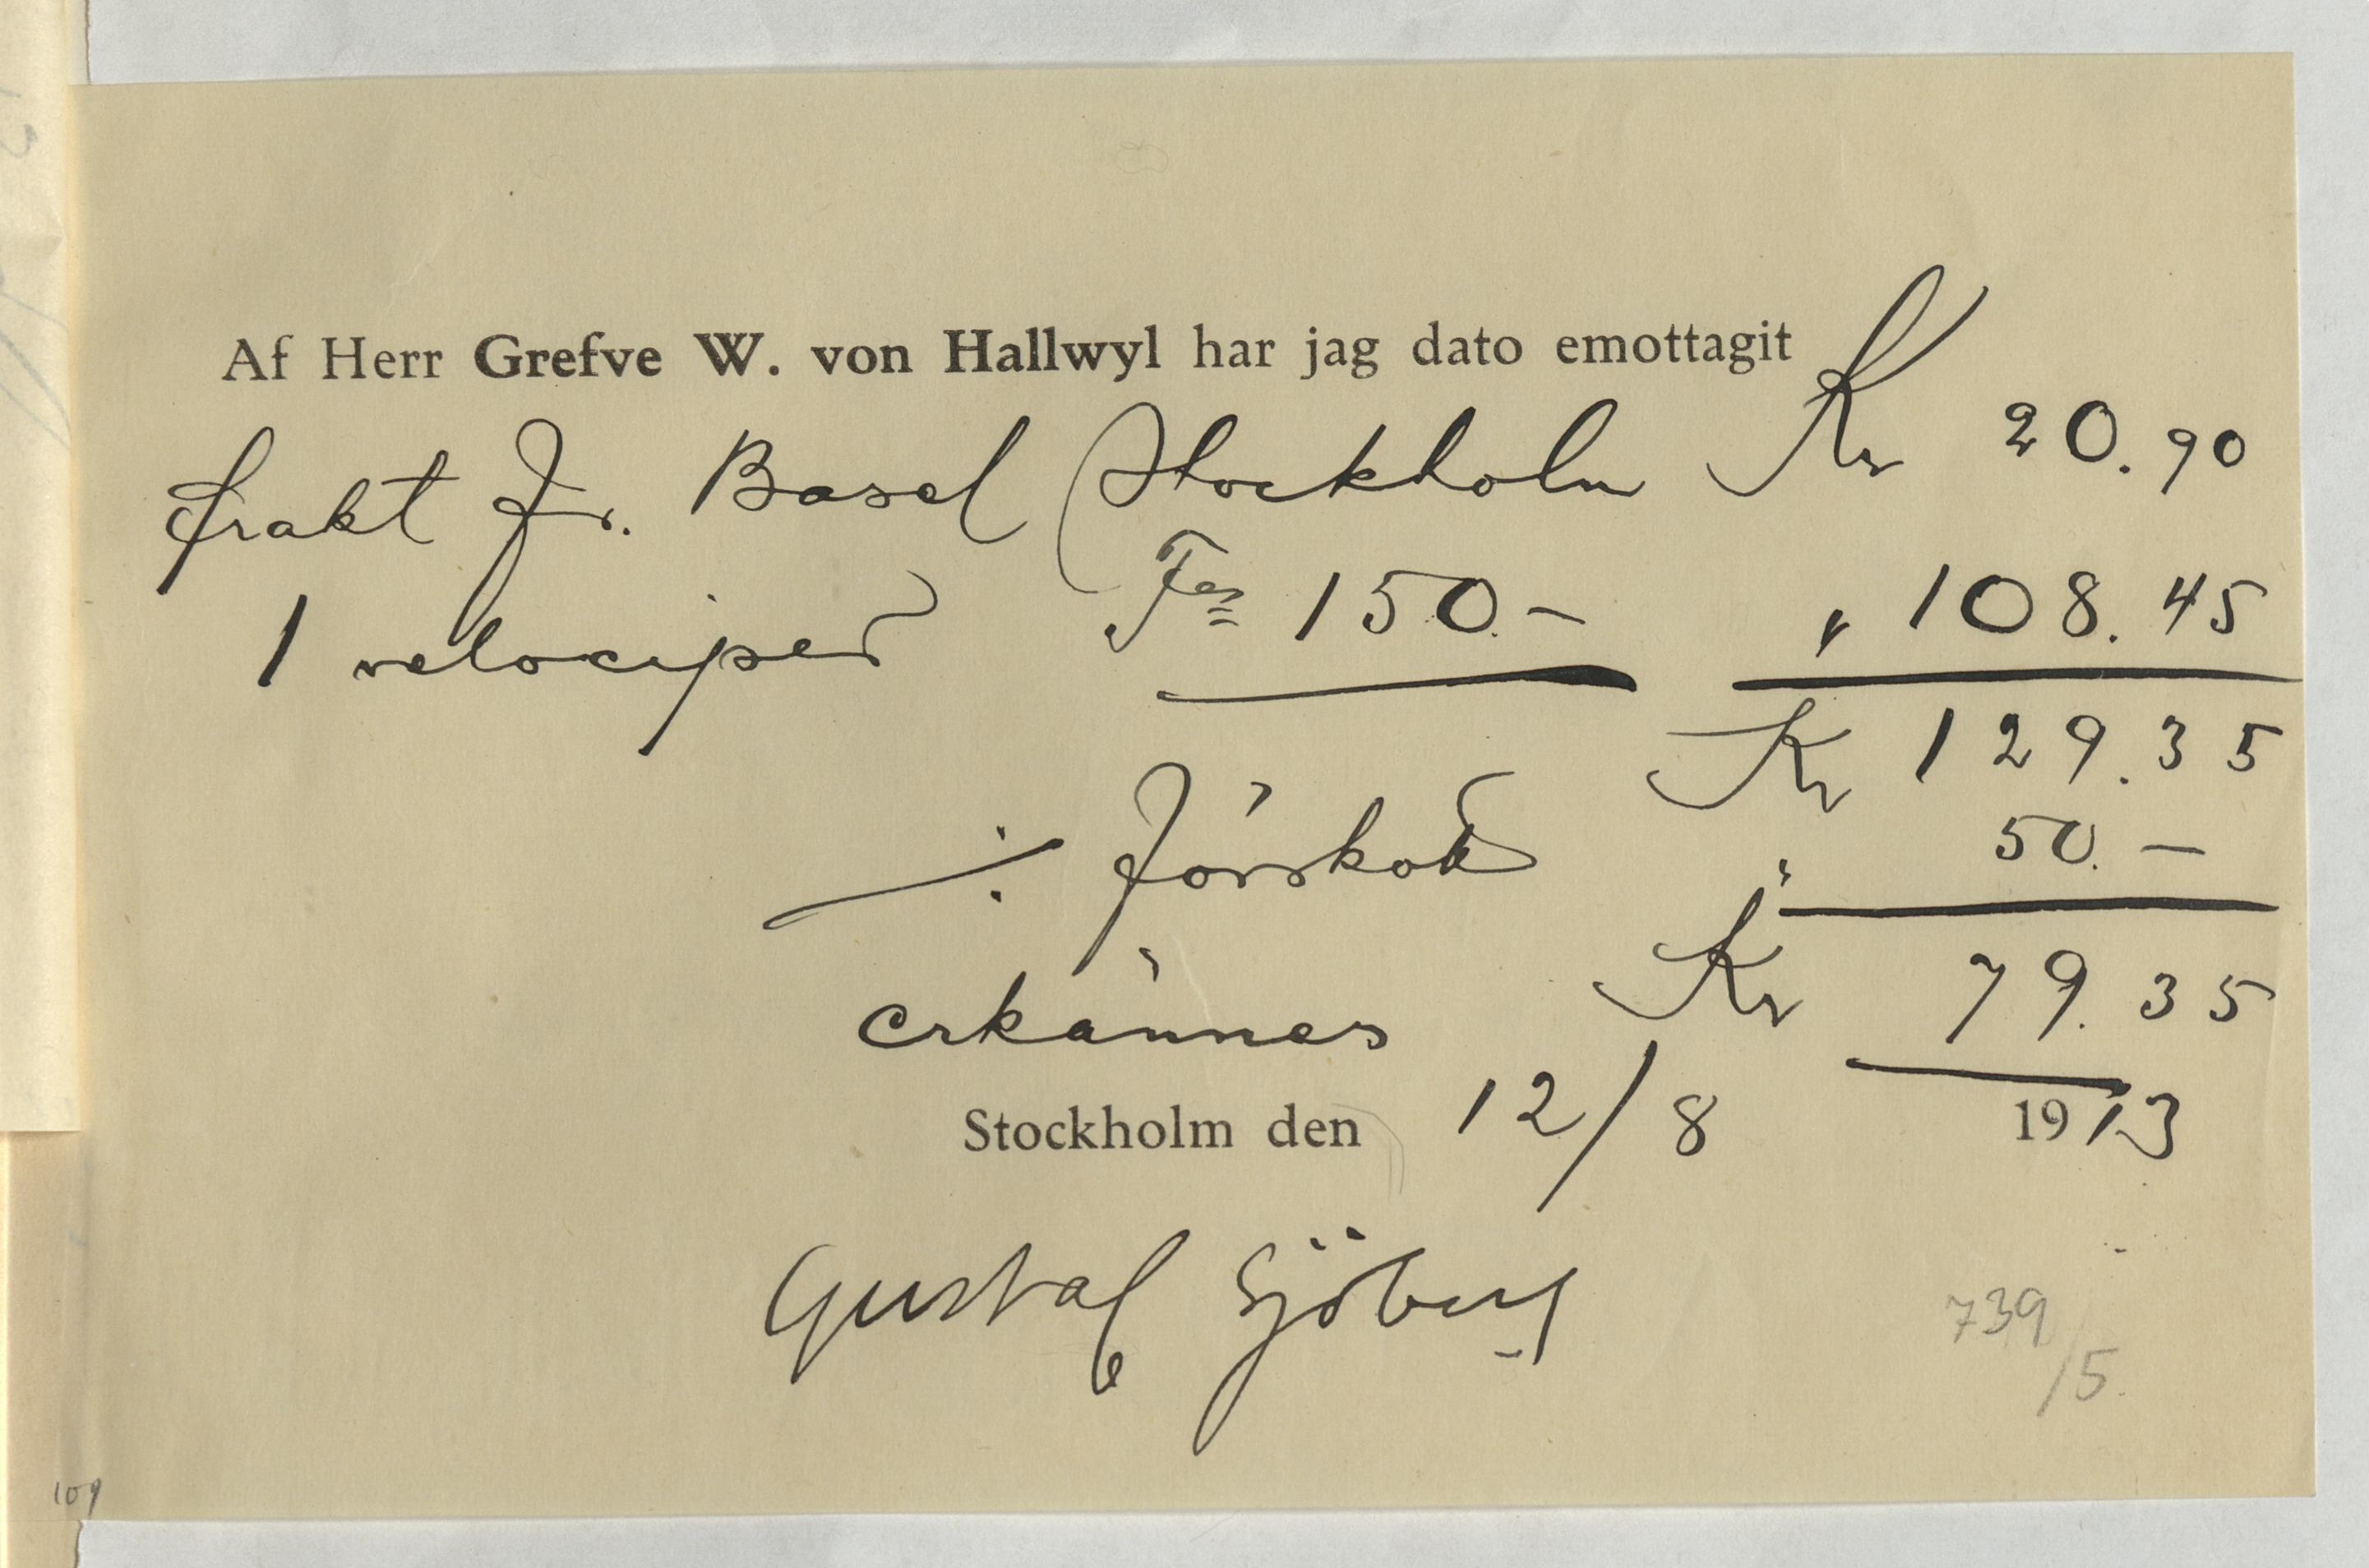 Af Herr Grefve W. von Hallwyl har jag dato emottagit
frakt fr. Basel Stockholm Kr 20.90
1 velociped Fcs 150.- " 108.45
Kr 129.35
./. Förskott " 50.-
erkännes Kr 79.35
Stockholm den 12/8 1913
Gustaf Sjöberg
739/5
109